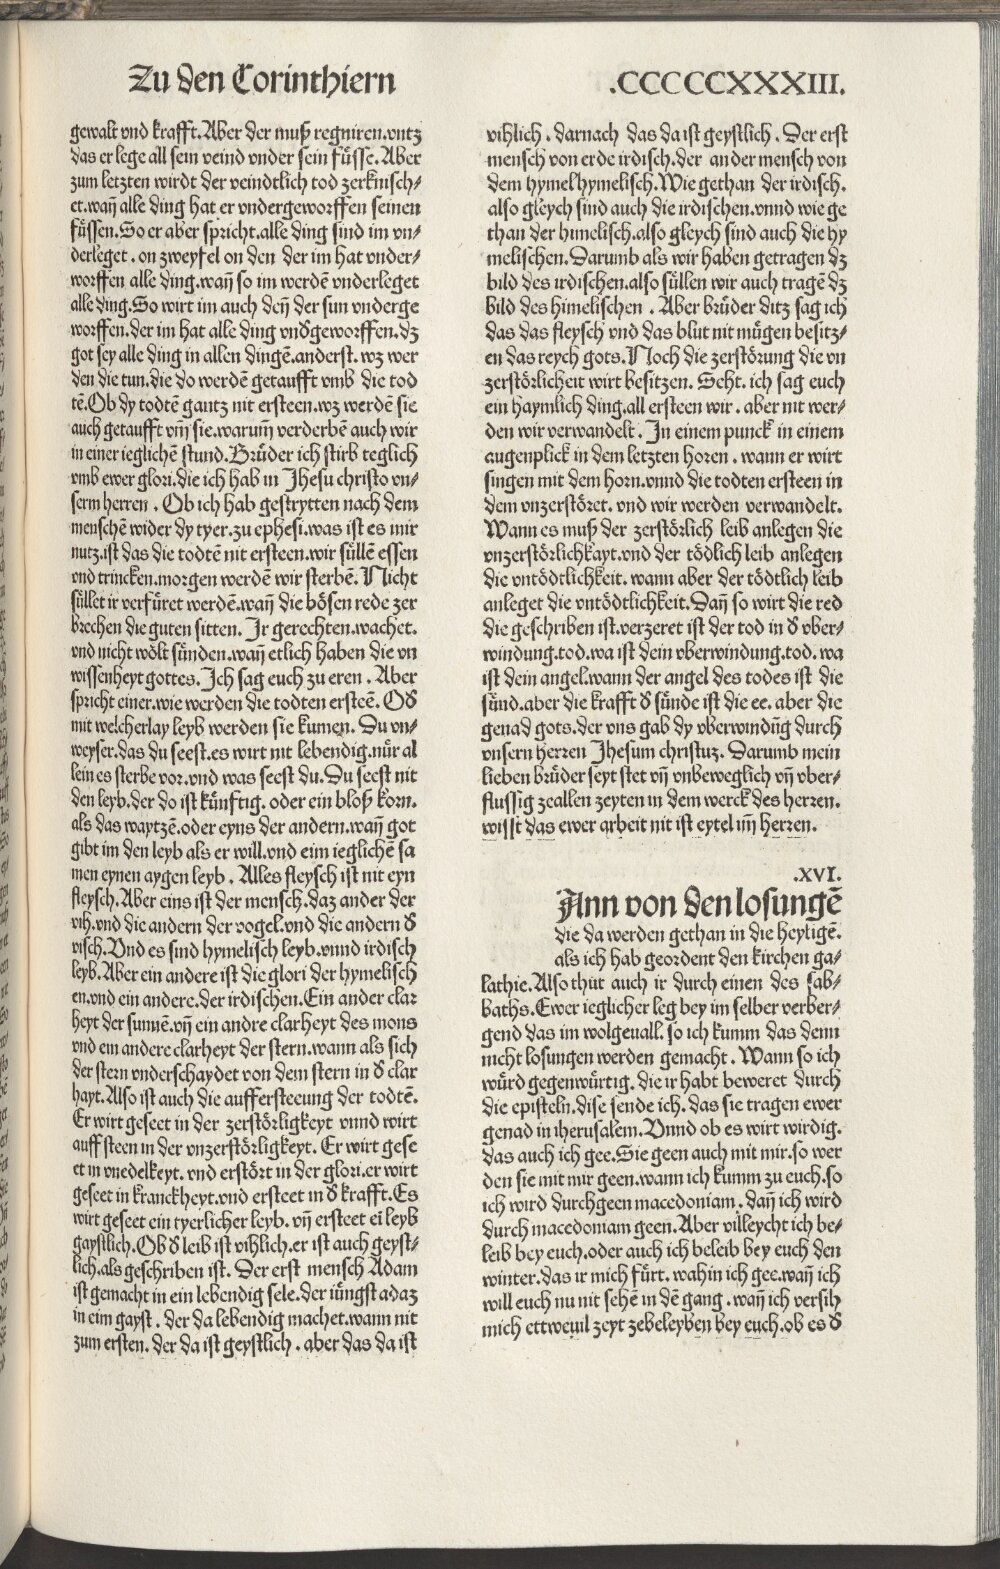 Zu den Corinthiern
.CCCCCXXXIII.
gewalt vnd krafft. Aber der muß regniren. vntz
das er lege all sein veind vnder sein fuͤsse. Aber
zum letzten wirdt der veindtlich tod zerknisch⸗
et. wañ alle ding hat er vndergeworffen seinen
fuͤssen. So er aber spricht. alle ding sind im vn⸗
derleget. on zweyfel on den der im hat vnder⸗
worffen alle ding. wañ so im werdē vnderleget
alle ding. So wirt im auch deñ der sun vnderge
worffen. der im hat alle ding vnđgeworffen. dz
got sey alle ding in allen dingē. anderst. wz wer
den die tun. die do werdē getaufft vmb die tod
tē. Ob dy todtē gantz nit ersteen. wz werdē sie
auch getaufft vm̄ sie. warum̄ verderbē auch wir
in einer ieglichē stund. Bruͤder ich stirb teglich
vmb ewer glori. die ich hab in Jhesu christo vn⸗
serm herren . Ob ich hab gestrytten nach dem
menschē wider dy tyer. zu ephesi. was ist es mir
nutz. ist das die todtē nit ersteen. wir süllē essen
vnd trincken. morgen werdē wir sterbē. Nicht
süllet ir verfüret werdē. wañ die bösen rede zer
brechen die guten sitten. Ir gerechten. wachet.
vnd nicht wölt sünden. wañ etlich haben die vn
wissenheyt gottes. Ich sag euch zu eren . Aber
spricht einer. wie werden die todten ersteē. Ođ
mit welcherlay leyb werden sie kumen. Du vn⸗
weyser. das du seest. es wirt nit lebendig. nür al
lein es sterbe vor. vnd was seest du. Du seest nit
den leyb. der do ist künftig. oder ein bloß korn.
als das waytzē. oder eyns der andern. wañ got
gibt im den leyb als er will. vnd eim ieglichē sa
men eynen aygen leyb . Alles fleysch ist nit eyn
fleysch. Aber eins ist der mensch. daz ander der
vih. vnd die andern der vogel. vnd die andern đ
visch. Vnd es sind hymelisch leyb. vnnd irdisch
leyb. Aber ein andere ist die glori der hymelisch
en. vnd ein andere. der irdischen. Ein ander clar
heyt der sunnē. vñ ein andre clarheyt des mons
vnd ein andere clarheyt der stern. wann als sich
der stern vnderschaydet von dem stern in đ clar
hayt. Also ist auch die aufferstee̅ung der todtē.
Er wirt geseet in der zerstörligkeyt vnnd wirt
auff steen in der vnzerstörligkeyt. Er wirt gese
et in vnedelkeyt. vnd erstört in der glori. er wirt
geseet in kranckheyt. vnd ersteet in đ krafft. Es
wirt geseet ein tyerlicher leyb. vñ ersteet eī leyb
gaystlich. Ob đ leib ist vihlich. er ist auch geyst⸗
lich. als geschriben ist. Der erst mensch Adam
ist gemacht in ein lebendig sele. der iüngst adaz
in eim gayst . der da lebendig machet. wann nit
zum ersten. der da ist geystlich . aber das da ist
vihlich . darnach das da ist geystlich . Der erst
mensch von erde irdisch. der ander mensch von
dem hymel hymelisch. Wie gethan der irdisch.
also gleych sind auch die irdischen. vnnd wie ge
than der himelisch. also gleych sind auch die hy
melischen. Darumb als wir haben getragen dz
bild des irdischen. also süllen wir auch tragē dz
bild des himelischen . Aber brüder ditz sag ich
das das fleysch vnd das blut nit mügen besitz⸗
en das reych gots. Noch die zerstörung die vn
zerstörlicheit wirt besitzen. Seht. ich sag euch
ein haymlich ding. all ersteen wir . aber nit wer⸗
den wir verwandelt . In einem punck in einem
augenplick in dem letzten horen . wann er wirt
singen mit dem horn. vnnd die todten ersteen in
dem vnzerstöret. vnd wir werden verwandelt.
Wann es muß der zerstörlich leib anlegen die
vnzerstörlichkayt. vnd der tödlich leib anlegen
die vntödtlichkeit. wann aber der tödtlich leib
anleget die vntödtlichkeit. Dañ so wirt die red
die geschriben ist. verzeret ist der tod in đ vber⸗
windung. tod. wa ist dein vberwindung. tod. wa
ist dein angel. wann der angel des todes ist die
sünd. aber die krafft đ sünde ist die ee. aber die
genad gots. der vns gab dy vberwindūg durch
vnsern herren Jhesum christuz. Darumb mein
lieben brüder seyt stet vñ vnbeweglich vñ vber⸗
flussig zeallen zeyten in dem werck des herren.
wisst das ewer arbeit nit ist eytel im̄ herren.
.XVI.
Ann von den losungē
die da werden gethan in die heyligē.
als ich hab geordent den kirchen ga⸗
lathie. Also thüt auch ir durch einen des sab⸗
baths. Ewer ieglicher leg bey im selber verber⸗
gend das im wolgeuall. so ich kumm das denn
nicht losungen werden gemacht . Wann so ich
würd gegenwürtig. die ir habt beweret durch
die episteln. dise sende ich. das sie tragen ewer
genad in iherusalem. Vnnd ob es wirt wirdig.
das auch ich gee. Sie geen auch mit mir. so wer
den sie mit mir geen. wann ich kumm zu euch. so
ich wird durchgeen macedoniam . dañ ich wird
durch macedoniam geen. Aber villeycht ich be⸗
leib bey euch. oder auch ich beleib bey euch den
winter. das ir mich fürt. wahin ich gee. wañ ich
will euch nu nit sehē in dē gang . wañ ich versih
mich ettweuil zeyt zebeleyben bey euch. ob es đ